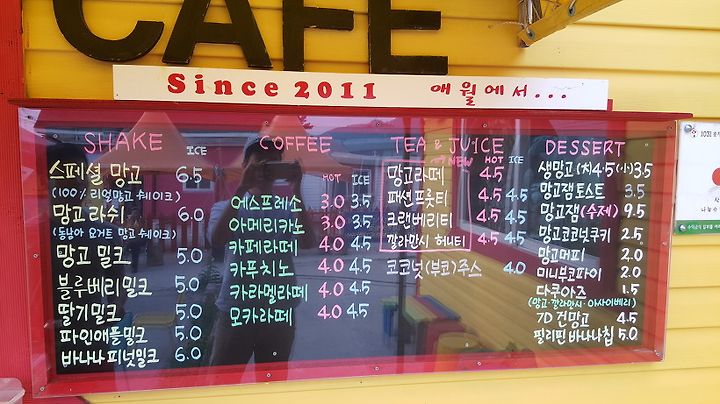 CAFE
Since 2011 애월에서...
SHAKE ICE
스페셜 망고 6.5
(100% 리얼망고 쉐이크)
망고 라쉬 6.0
(동남아 요거트 망고 쉐이크)
망고 밀크 5.0
블루베리밀크 5.0
딸기 밀크 5.0
파인애플밀크 5.0
바나나피넛밀크 6.0
COFFEE
HOT ICE
에스프레소 3.0 3.5
아메리카노 3.0 3.5
카페라떼 4.0 4.5
카푸치노 4.0 4.5
카라멜라떼 4.0 4.5
모카라떼 4.0 4.5
TEA & JUICE
NEW HOT ICE
망고라떼 4.5
패션프룻티 4.5 4.5
크랜베리티 4.5 4.5
깔라만시 허니티 4.5 4.5
코코넛(부코)주스 4.0
DESSERT
생망고(大)4.5(小)3.5
망고잼토스트 3.5
망고잼(수제) 9.5
망고코코넛쿠키 2.5
망고머피 2.0
미니부코파이 2.0
다쿠아즈 1.5
(망고·깔라만시·아사이베리)
7D 건망고 4.5
필리핀 바나나칩 5.0